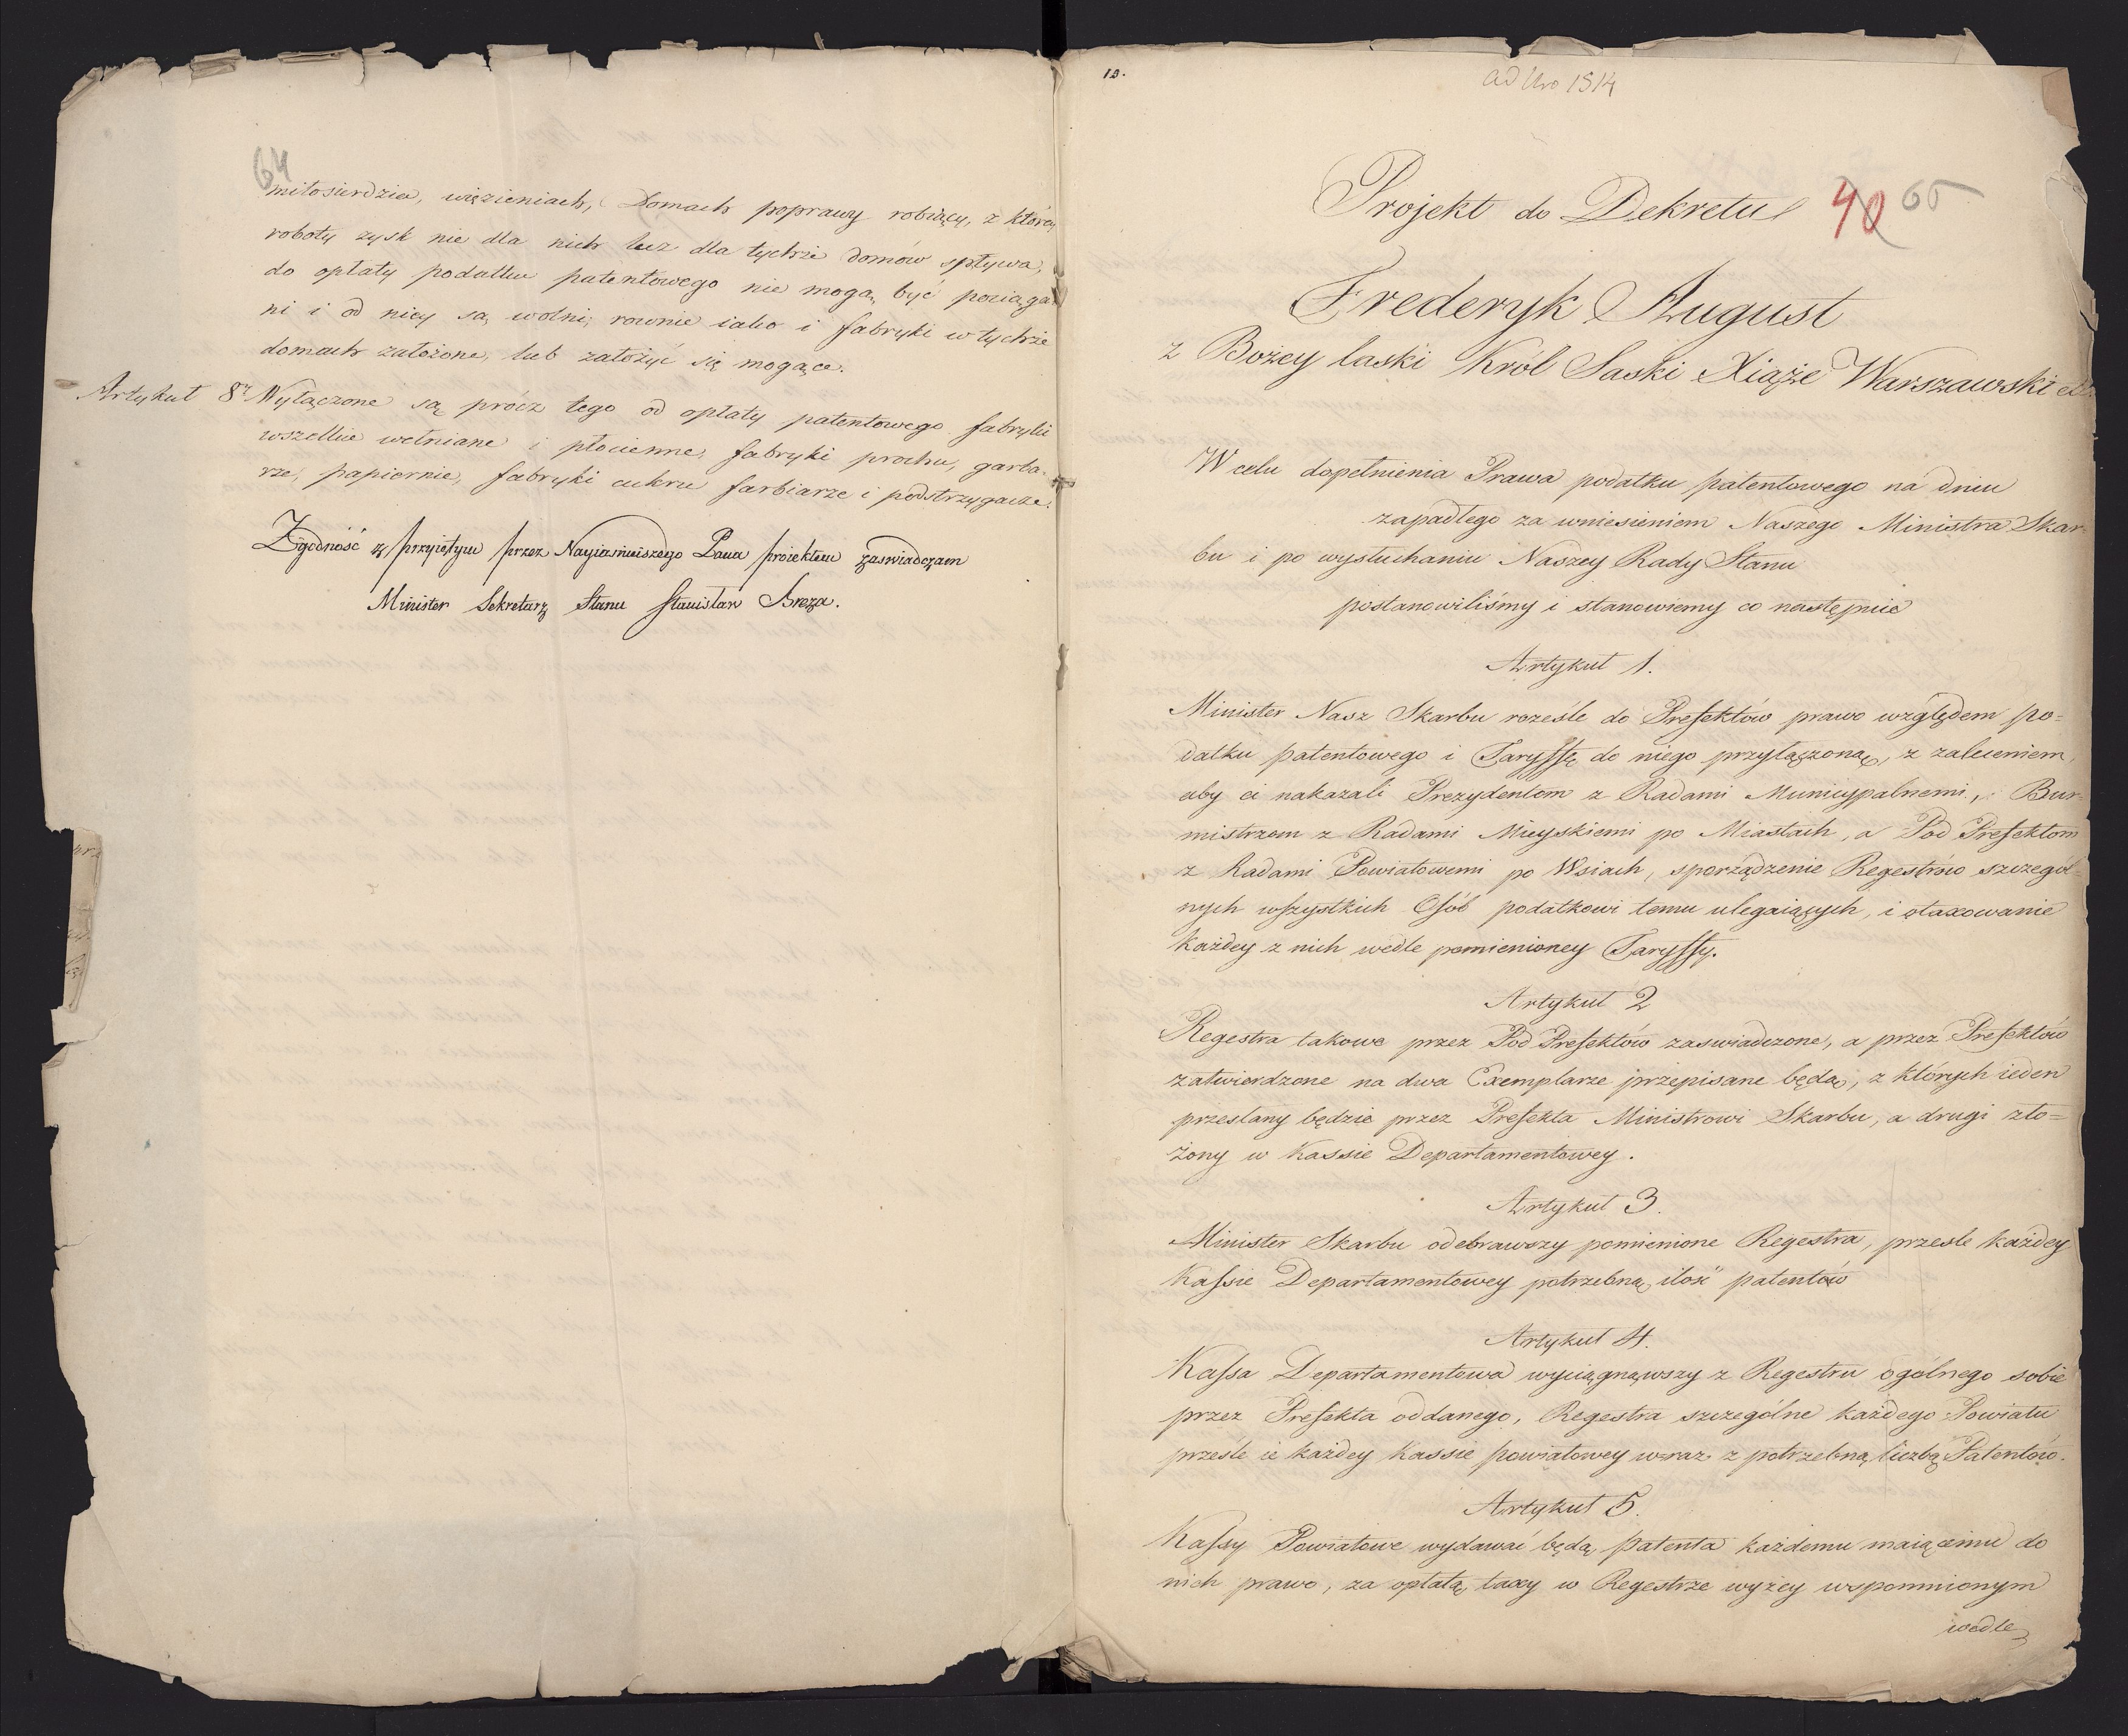 64
miłosierdzia, więzieniach, Domach poprawy robiący, z którey
roboty zysk nie dla nich lecz dla tychże domów spływa,
do opłaty podatku patentowego nie mogą być pociąga
ni i od niey są wolni, rownie iako i fabryki w tychże
domach założone, lub założyć się mogące.
Artykuł 8y Wyłączone są prócz tego od opłaty patentowego fabryki
wszelkie wełniane i płocienne, fabryki prochu, garba-
rze, papiernie, fabryki cukru farbiarze i podstrzygacze.
Zgodność z przyiętym przez Nayiaśnieiszego Pana proiektem zaswiadczam
Minister Sekretarz Stanu Stanisław Breza.
13.
ad Nro 1514
Projekt do Dekretu 40 65
Frederyk August
z Bożey laski Król Saski Xiąże Warszawski etc
W celu dopełnienia Prawa podatku patentowego na dniu
zapadłego za wniesieniem Naszego Ministra Skar-
bu i po wysłuchaniu Naszey Rady Stanu
postanowiliśmy i stanowiemy co następuie
Artykuł 1.
Minister Nasz Skarbu roześle do Prefektów prawo względem po=
datku patentowego i Taryffę do niego przyłączoną, z zaleceniem,
aby ci nakazali Prezydentom z Radami Municypalnemi, Bur=
mistrzom z Radami Mieyskiemi po Miastach, a Pod Prefektom
z Radami Powiatowemi po Wsiach, sporządzenie Regestrów szczegól=
nych wszystkich Osób podatkowi temu ulegaiących, i otaxowanie
każdey z nich wedle pomienioney Taryffy.
Artykuł 2
Regestra takowe przez Pod Prefektów zaswiadczone, a przez Prefektów
zatwierdzone na dwa Exemplarze przepisane będą, z których ieden
przesłany będzie przez Prefekta Ministrowi Skarbu, a drugi zło=
żony w Kassie Departamentowey.
Artykuł 3.
Minister Skarbu odebrawszy pomienione Regestra, przesle każdey
Kassie Departamentowey potrzebną ilość patentów
Artykuł 4.
Kassa Departamentowa wyciągnąwszy z Regestru ogólnego sobie
przez Prefekta oddanego, Regestra szczególne każdego Powiatu
prześle ie każdey Kassie powiatowey wraz z potrzebną liczbą Patentów.
Artykuł 5.
Kassy Powiatowe wydawać będą patenta każdemu maiącemu do
nich prawo, za opłatą taxy w Regestrze wyżey wspomnionym
wedle